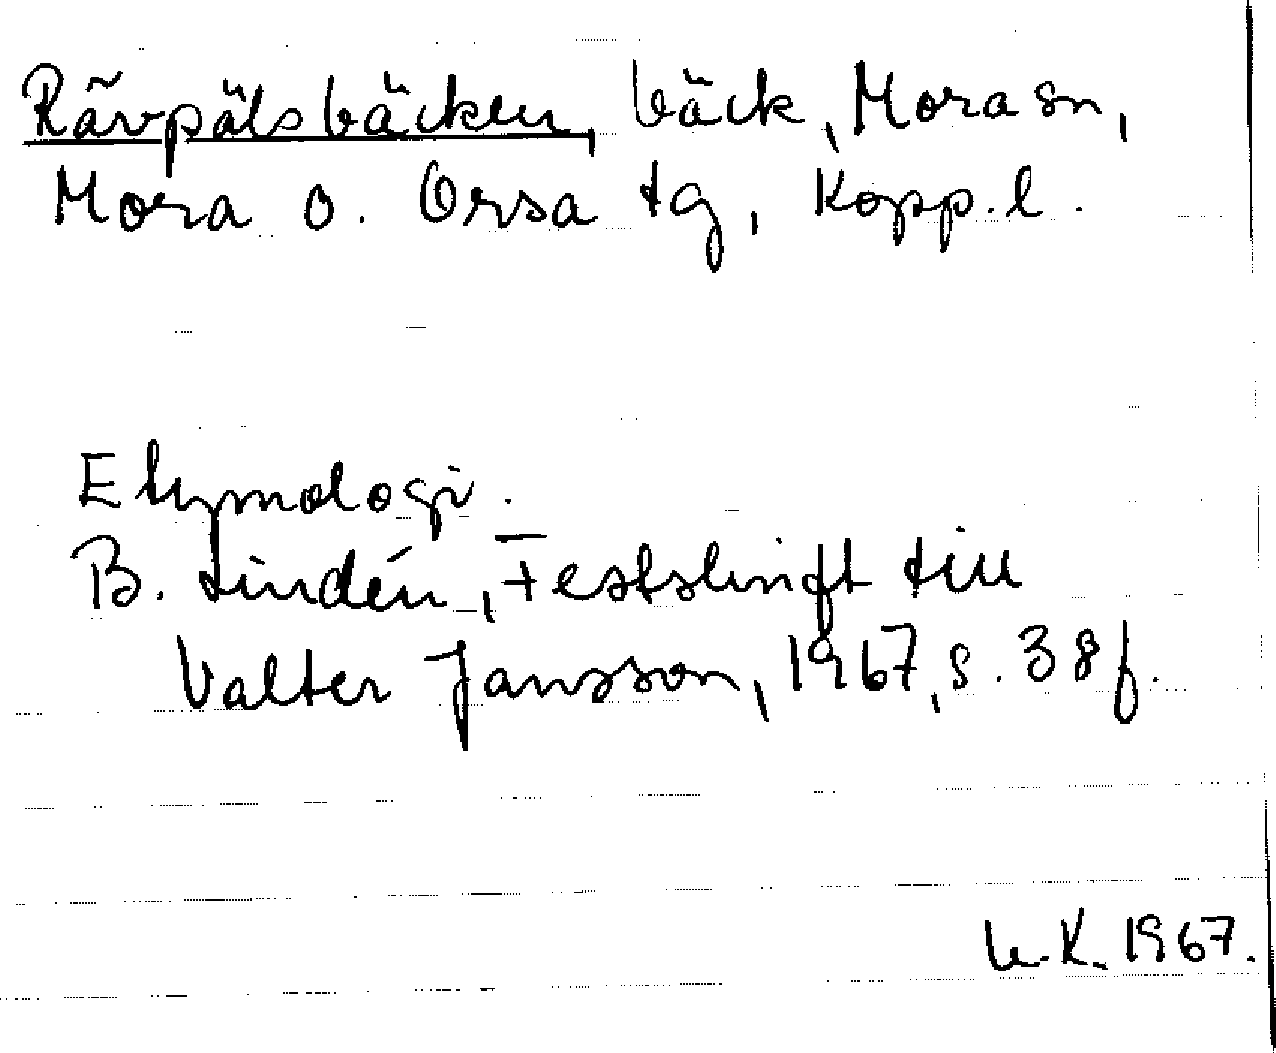 Rävpälsbäcken, bäck, Mora sn,
Mora o. Orsa tg, Kopp. l.
Etymologi.
B. Lindén, Festskrift till
Valter Jansson, 1967, s. 38 f.
U.K. 1967.